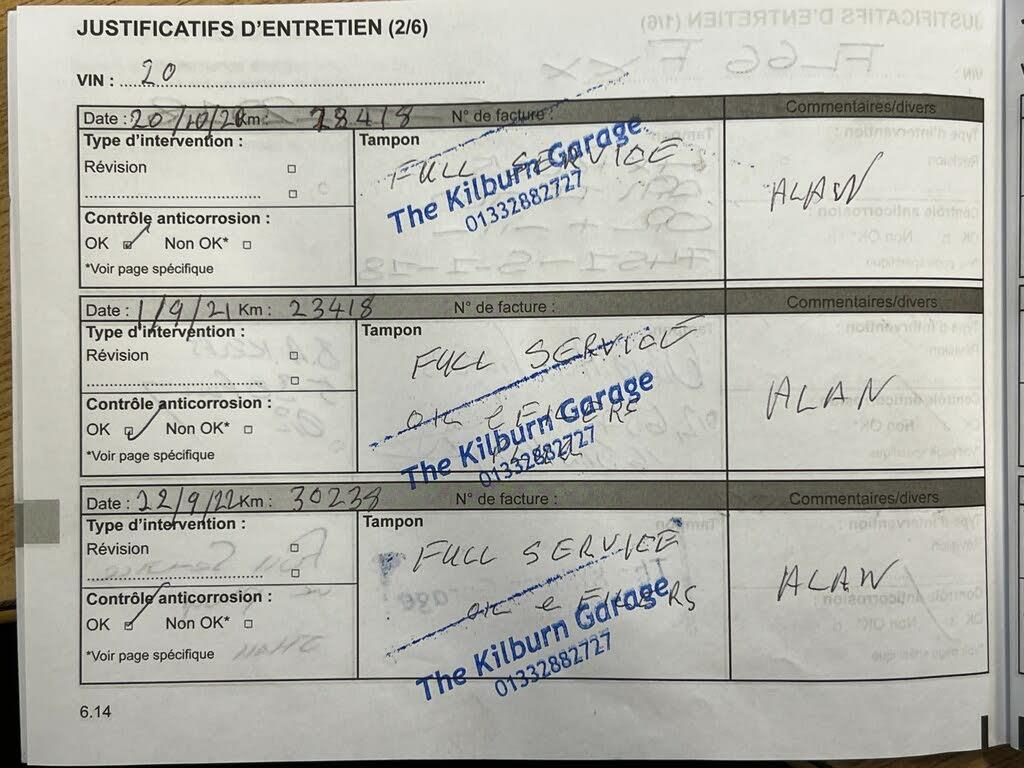 JUSTIFICATIFS D'ENTRETIEN (2/6)
VIN : 20
Date : 20/10/20 Km : 18418 N° de facture : Commentaires/divers
Type d'intervention :
Révision
Tampon
FULL SERVICE
The Kilburn Garage
01332882727
ALAN
Contrôle anticorrosion :
OK Non OK*
*Voir page spécifique
Date : 1/9/21 Km : 23418 N° de facture : Commentaires/divers
Type d'intervention :
Révision
Tampon
FULL SERVICE
OIL e FILTERS
The Kilburn Garage
01332882727
ALAN
Contrôle anticorrosion :
OK Non OK*
*Voir page spécifique
Date : 22/9/22 Km : 30238 N° de facture : Commentaires/divers
Type d'intervention :
Révision
Tampon
FULL SERVICE
OIL e FILTERS
The Kilburn Garage
01332882727
ALAN
Contrôle anticorrosion :
OK Non OK*
*Voir page spécifique
6.14